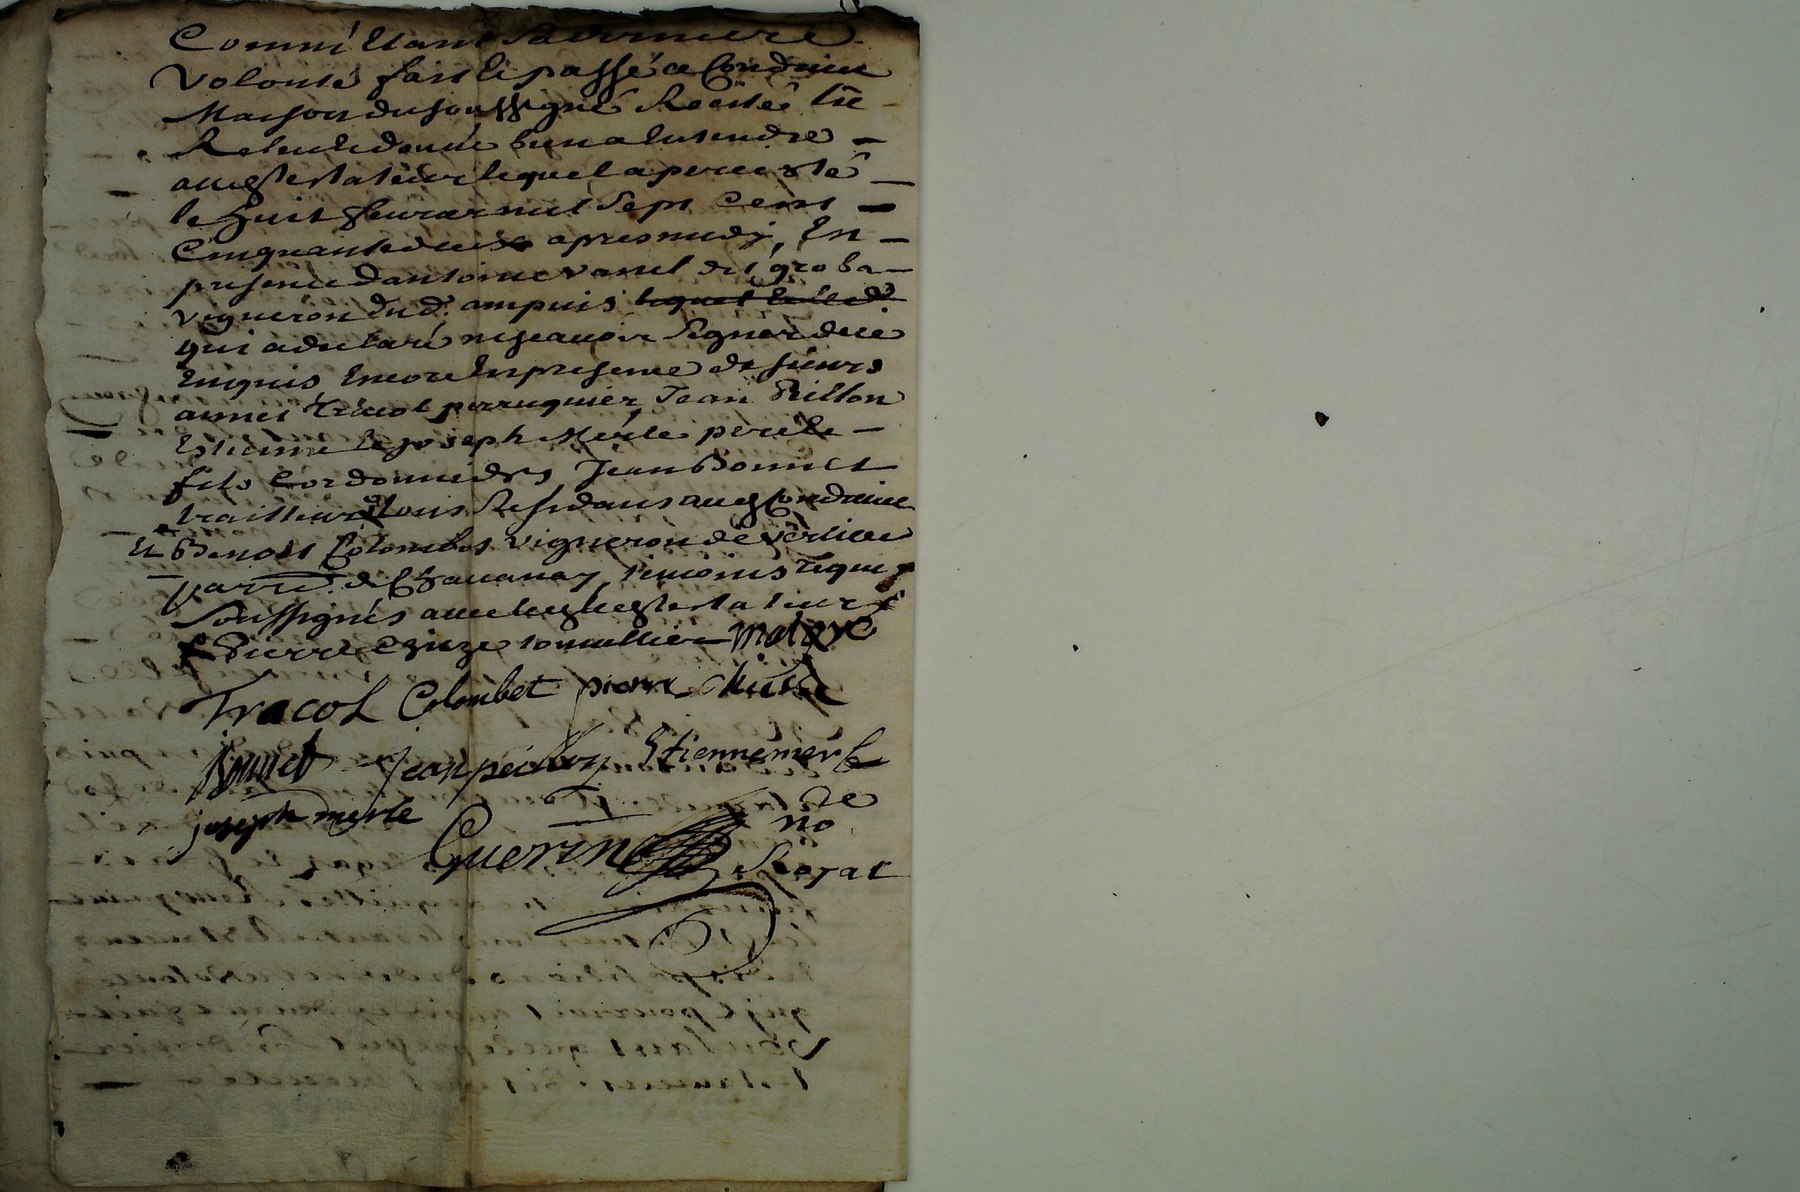 Comme Etant Sa derniere
Volonté fait Et passé a Condrieu
Maison du soussigné Recitée Lüe
Releue Et donné bien a Entendre
aud testateur lequel a percisté
le huit feurier mil Sept Cent
Cinquante deux apres midy, En
presence d'antoine vanel dit groba
vigneron dud. ampuis
qui a declaré ne scauoir Signer de ce
Enquis Encore En presence de sieurs
Tracol perruquier, Jean Peillon
Estienne Et joseph Merle pere Et
fils Cordonniers, Jean Bonnet
trailleur tous Residans aud Condrieu
Et Benoit Colombet vigneron de verlieu
parre. de Chauanay, temoins requis
Soussignés auec led testateur &
& Pierre Chuze tonnellier
Tracol Colombet pierre Chuse
Bonnet Jean peillon Etienne merle
joseph merle
Guerin
no
Royal